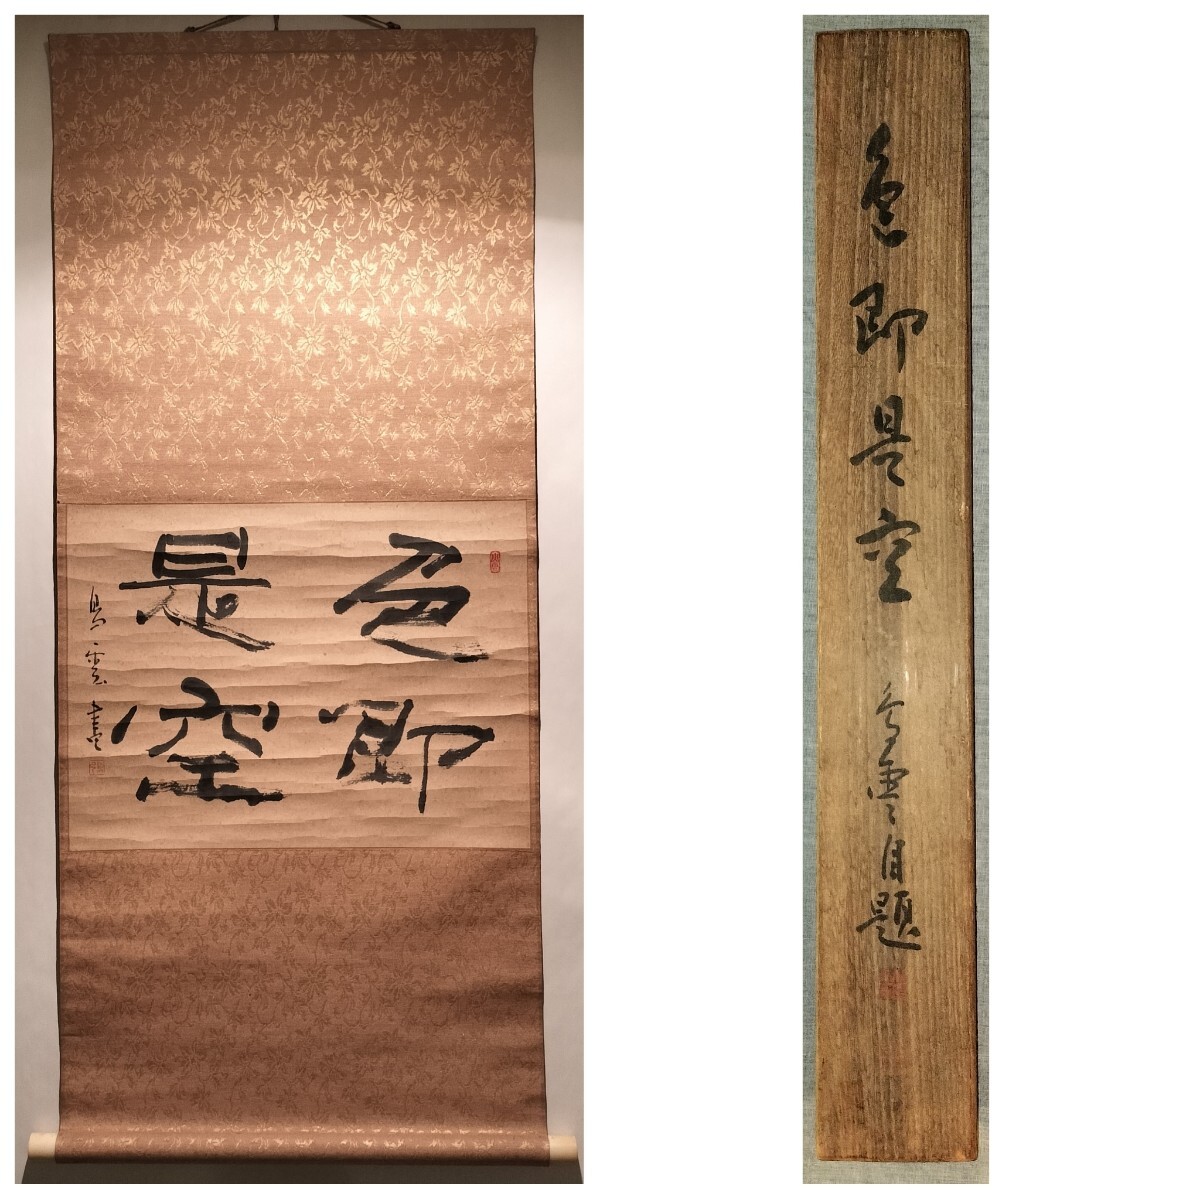 色即
是空
雲書
色即是空
雲自題